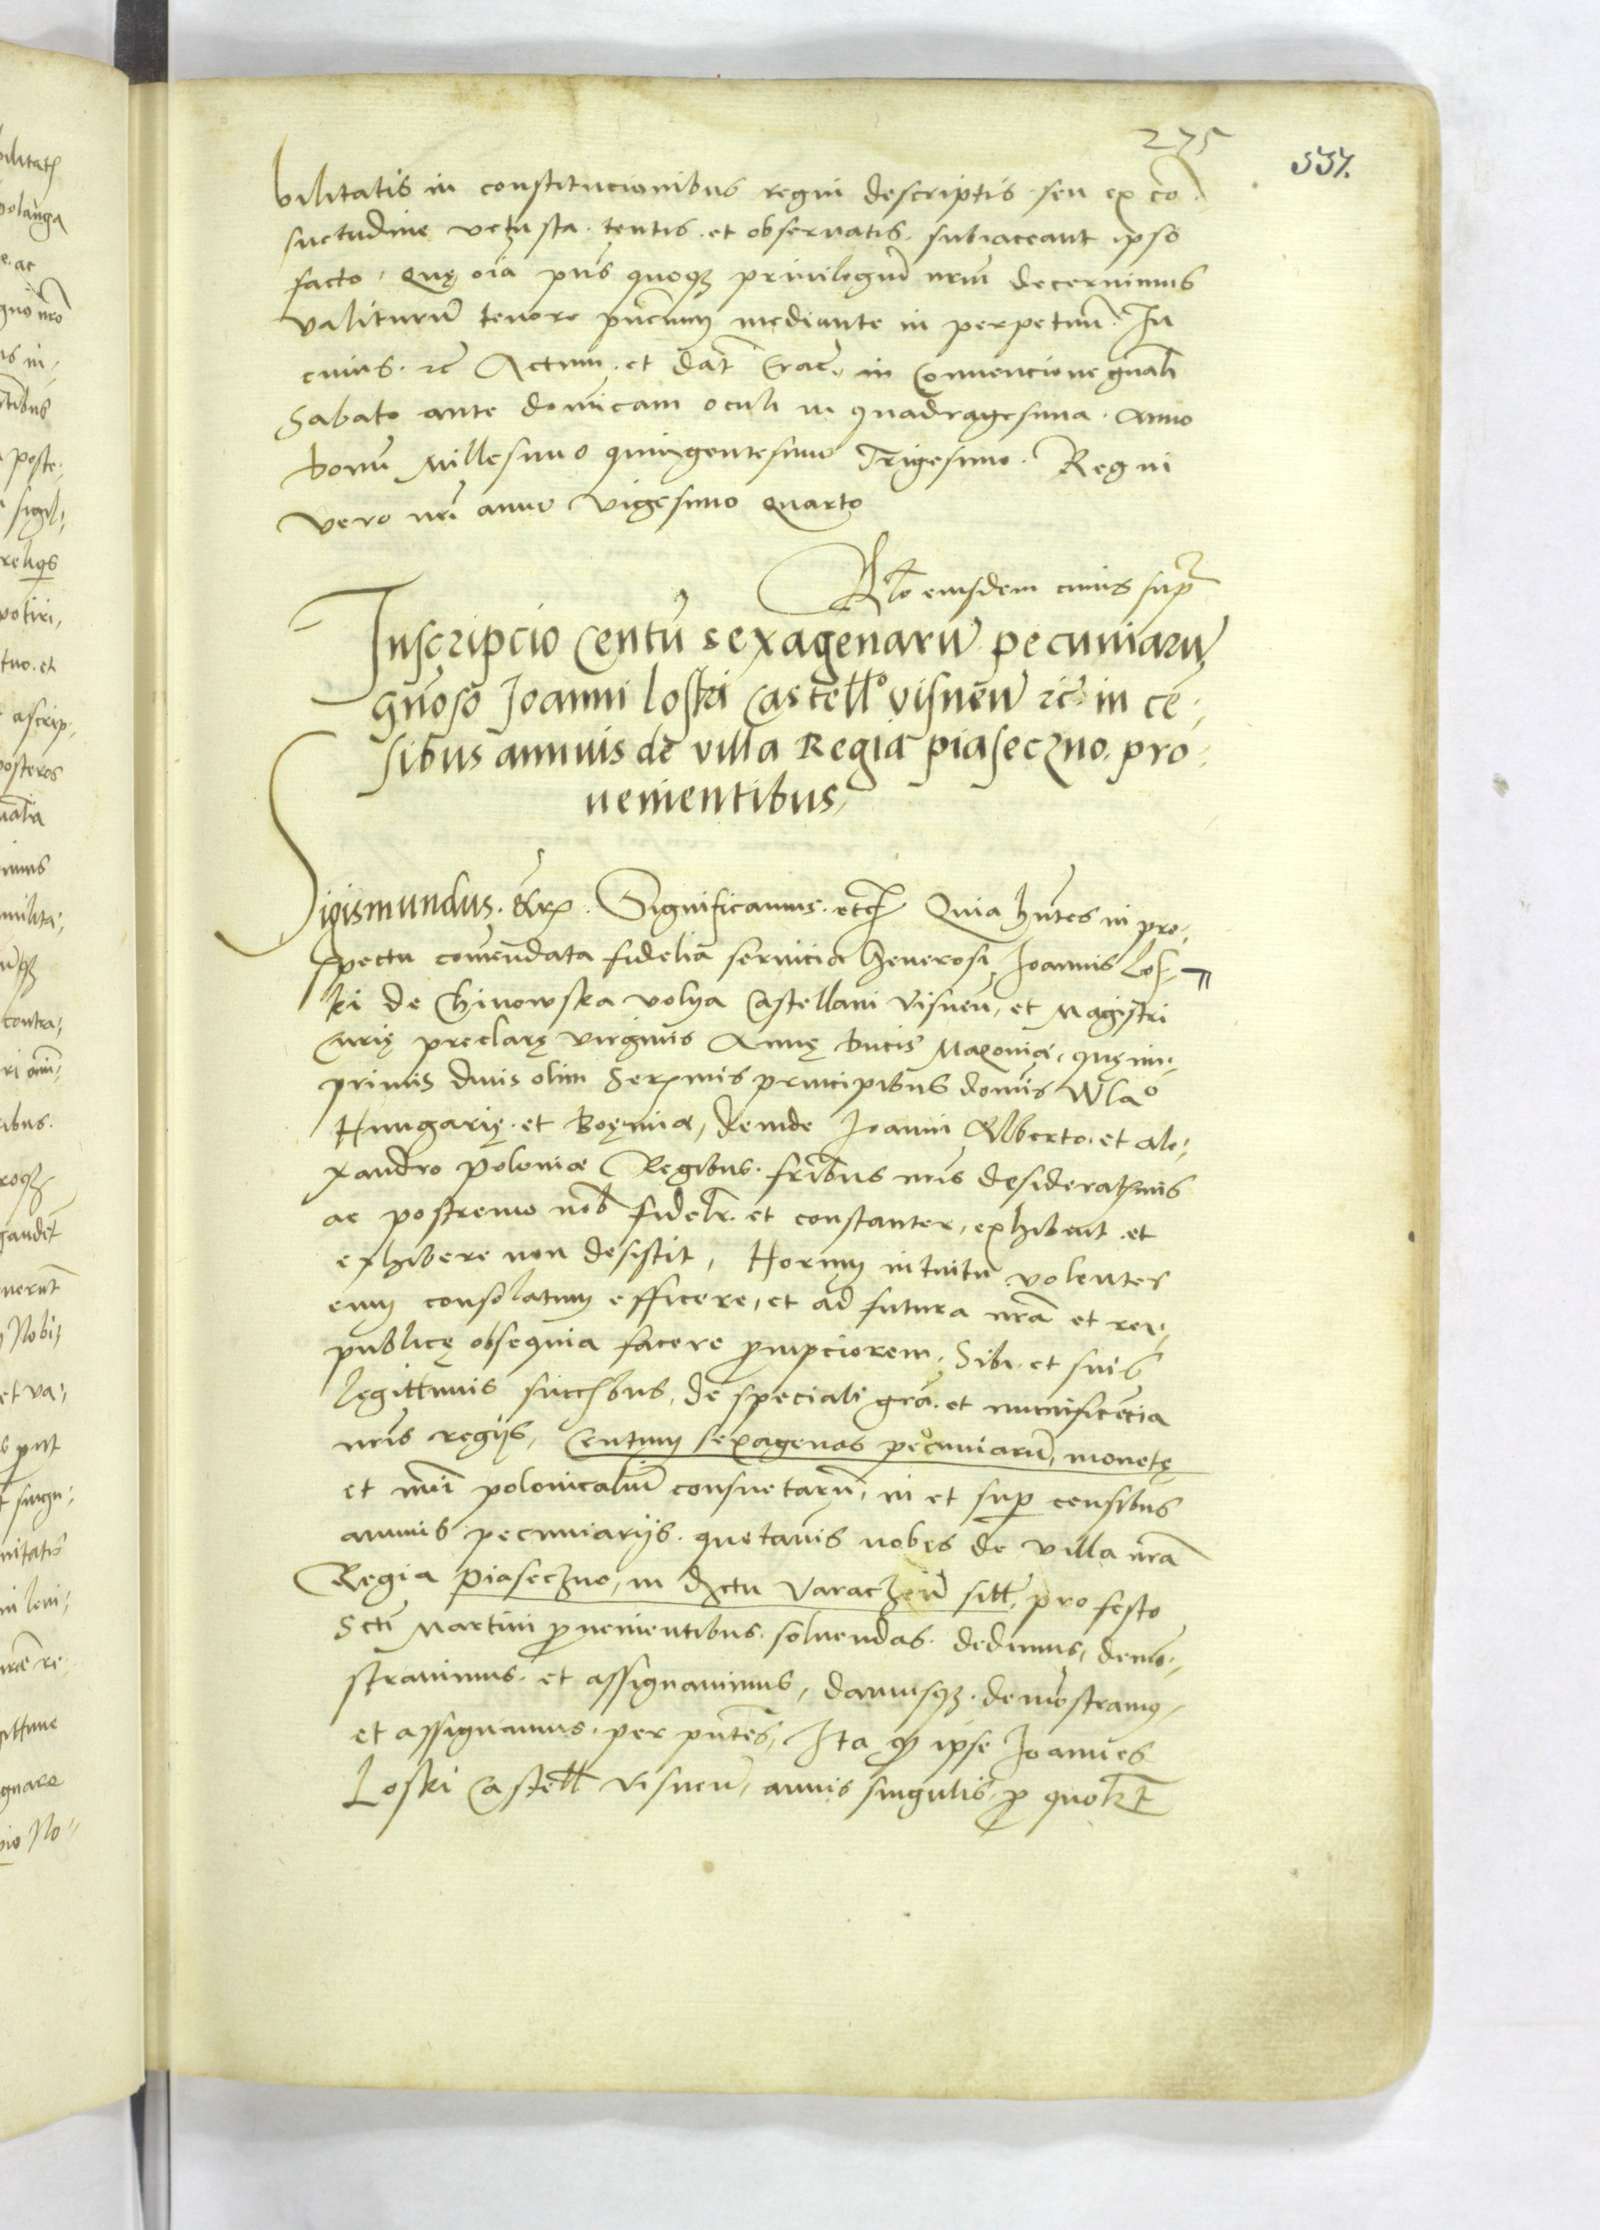 275
537.
bilitatis in constitucionibus regni descriptis seu ex co
suetudine vetusta tentis et observatis subiaceant ipso
facto, Quę oia pns quoqz privilegiu nrm decernimus
valiturum tenore pncium mediante in perpetuum. In
cuius rc Actum et dat Crac in Convencione gnali
Sabato ante dominicam oculi in quadragesima Anno
domi Millesimo quingentesimo Trigesimo. Regni
vero nri anno vigesimo quarto
Rlo eiusdem cuius supr
Inscripcio Centu sexagenaru pecuniaru
gnoso Joanni loski Castello visnen rc in ce-
sibus annuis de villa Regia piaseczno pro-
venientibus
Sigismundus. Significamus. etc Quia hntes in pro-
spectu comendata fidelia servicia Generosi Joannis Los-
ki de Chinowska volya Castellani visnen, et Magistri
curię preclarę virginis Annę ducis Maxoviæ, quę in-
primis divis olim Sermis principibus domis Wlao
Hungarię et Boęmiæ, deinde Joanni Alberto et Ale-
xandro Poloniæ Regibus fribus nris desideratmis
ac postremo nob fidelr et constanter, exhibuit et
exhibere non desistit, Horum intuitu volentes
eum consolatum efficere, et ad futura nra et rei-
publicę obsequia facere prompciorem, Sibi et suis
legittimis succsbus, de speciali gra et munificecia
nris regijs, Centum sexagenas pecuniaru, monetę
et nui polonicaliu consuetaru, in et sup censibus
annuis pecuniarijs quotannis nobis de villa nra
Regia Piaseczno, in dctu Varaczen sitt, pro festo
Scti Martini provenientibus solvendas dedimus, demo-
stravimus et assignavimus, damusqz demostramus
et assignamus per pntes, Ita q ipse Joannes
Loski Castell Visnen, annis singulis, p quolt